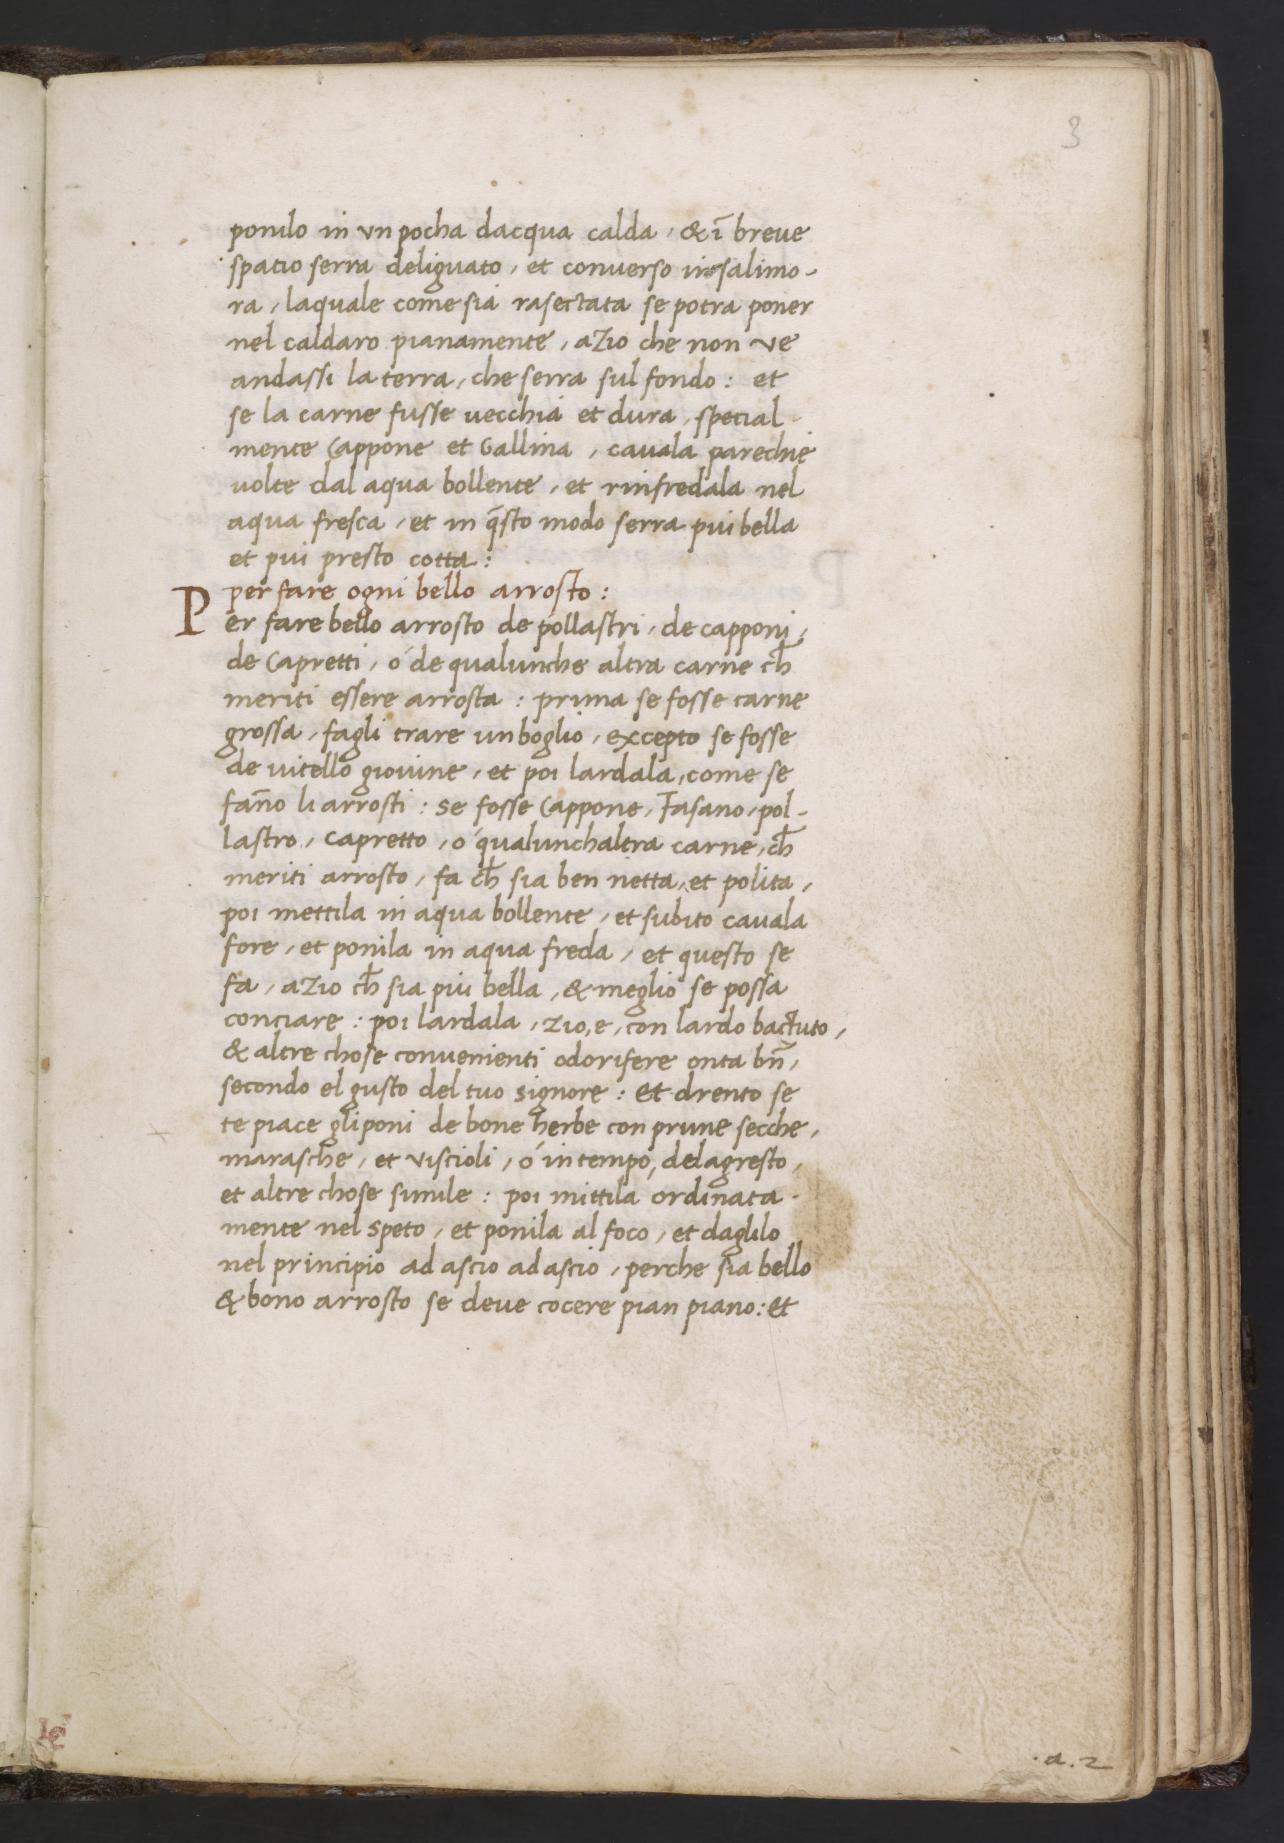 3
ponilo in vn pocha dacqua calda, & ī breue
spatio serra deliguato, et conuerso in salimo-
ra, laquale come sia rasectata se potra poner
nel caldaro pianamente, azio che non ve
andassi la terra, che serra sul fondo: et
se la carne fusse uecchia et dura, special-
mente Cappone et Gallina, cauala parechie
uolte dal aqua bollente, et rinfredala nel
aqua fresca, et in q̄sto modo serra piu bella
et piu presto cotta:
per fare ogni bello arrosto:
Per fare bello arrosto de pollastri, de capponi,
de Capretti, ó de qualunche altra carne ch̄
meriti essere arrosta: prima se fosse carne
grossa, fagli trare un boglio, excepto se fosse
de uitello giouine, et poi lardala, come se
fan̄o li arrosti: se fosse Cappone, Fasano, pol-
lastro, capretto, ó qualunchaltra carne, ch̄
meriti arrosto, fa ch̄ sia ben netta, et polita,
poi mettila in aqua bollente, et subito cauala
fore, et ponila in aqua freda, et questo se
fa, azio ch̄ sia piu bella, & meglio se possa
conciare: poi lardala, zio, e, con lardo bactuto,
& altre chose conuenienti odorifere onta bn̄,
secondo el gusto del tuo signore: Et drento se
te piace gli poni de bone herbe con prune secche,
marasche, et viscioli, ó in tempo, delagresto,
et altre chose simile: poi mittila ordinata-
mente nel speto, et ponila al foco, et daglilo
nel principio ad ascio ad ascio, perche sia bello
& bono arrosto se deue cocere pian piano: et
.a.2